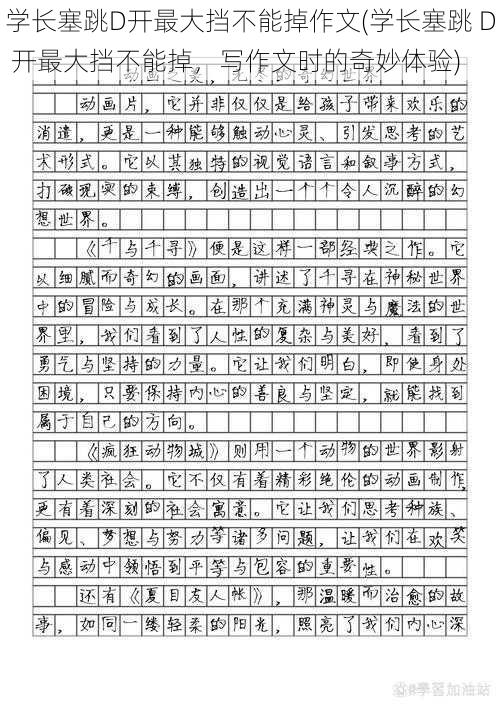 学长塞跳D开最大挡不能掉作文(学长塞跳 D
开最大挡不能掉，写作文时的奇妙体验)
动画之美，无尽的奇幻世界
动画片，它并非仅仅是给孩子带来欢乐的
消遣，更是一种能够触动心灵、引发思考的艺
术形式。它以其独特的视觉语言和叙事方式，
打破现实的束缚，创造出一个个令人沉醉的幻
想世界。
《千与千寻》便是这样一部经典之作。它
以细腻而奇幻的画面，讲述了千寻在神秘世界
中的冒险与成长。在那个充满神灵与魔法的世
界里，我们看到了人性的复杂与美好，看到了
勇气与坚持的力量。它让我们明白，即使身处
困境，只要保持内心的善良与坚定，就能找到
属于自己的方向。
《疯狂动物城》则用一个动物的世界影射
了人类社会。它不仅有着精彩绝伦的动画制作，
更有着深刻的社会寓意。它让我们思考种族、
偏见、梦想与努力等诸多问题，让我们在欢笑
与感动中领悟到平等与包容的重要性。
还有《夏目友人帐》，那温暖而治愈的故
事，如同一缕轻柔的阳光，照亮了我们内心深
學習加油站